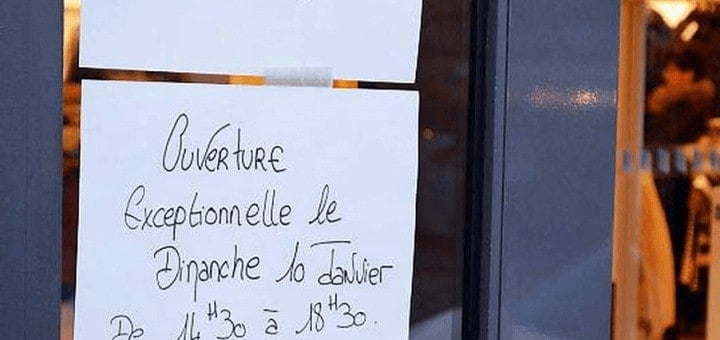 Ouverture
Exceptionnelle le
Dimanche 10 Janvier
De 14H30 à 18H30.